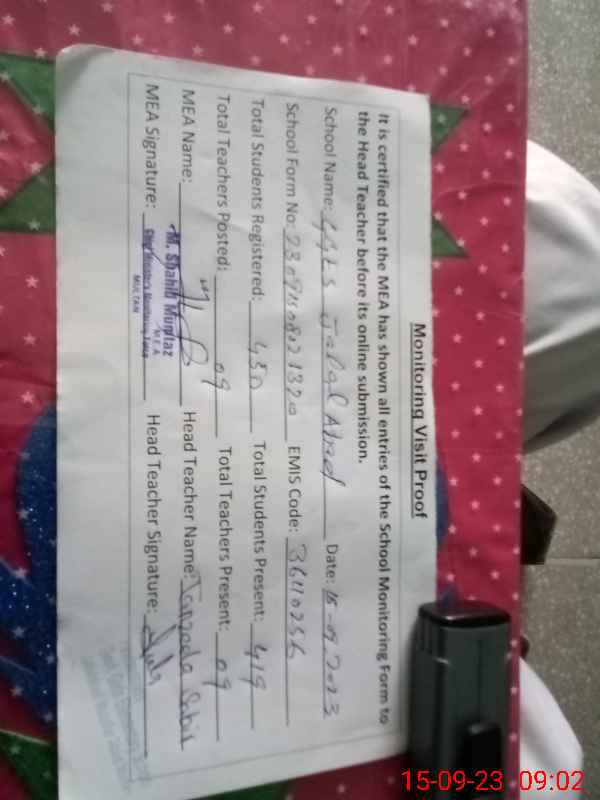 Monitoring Visit Proof
It is certified that the MEA has shown all entries of the School Monitoring Form to
the Head Teacher before its online submission.
School Name: GGES Date: 15-09-2023
School Form No: EMIS Code: 36110256
Total Students Registered: 450 Total Students Present: 419
Total Teachers Posted: 09 Total Teachers Present: 09
MEA Name: Head Teacher Name:
M. Shahid Mumtaz
M E A
Chief Minister's Monitoring Force
MULTAN
MEA Signature: Head Teacher Signature:
15-09-23 09:02